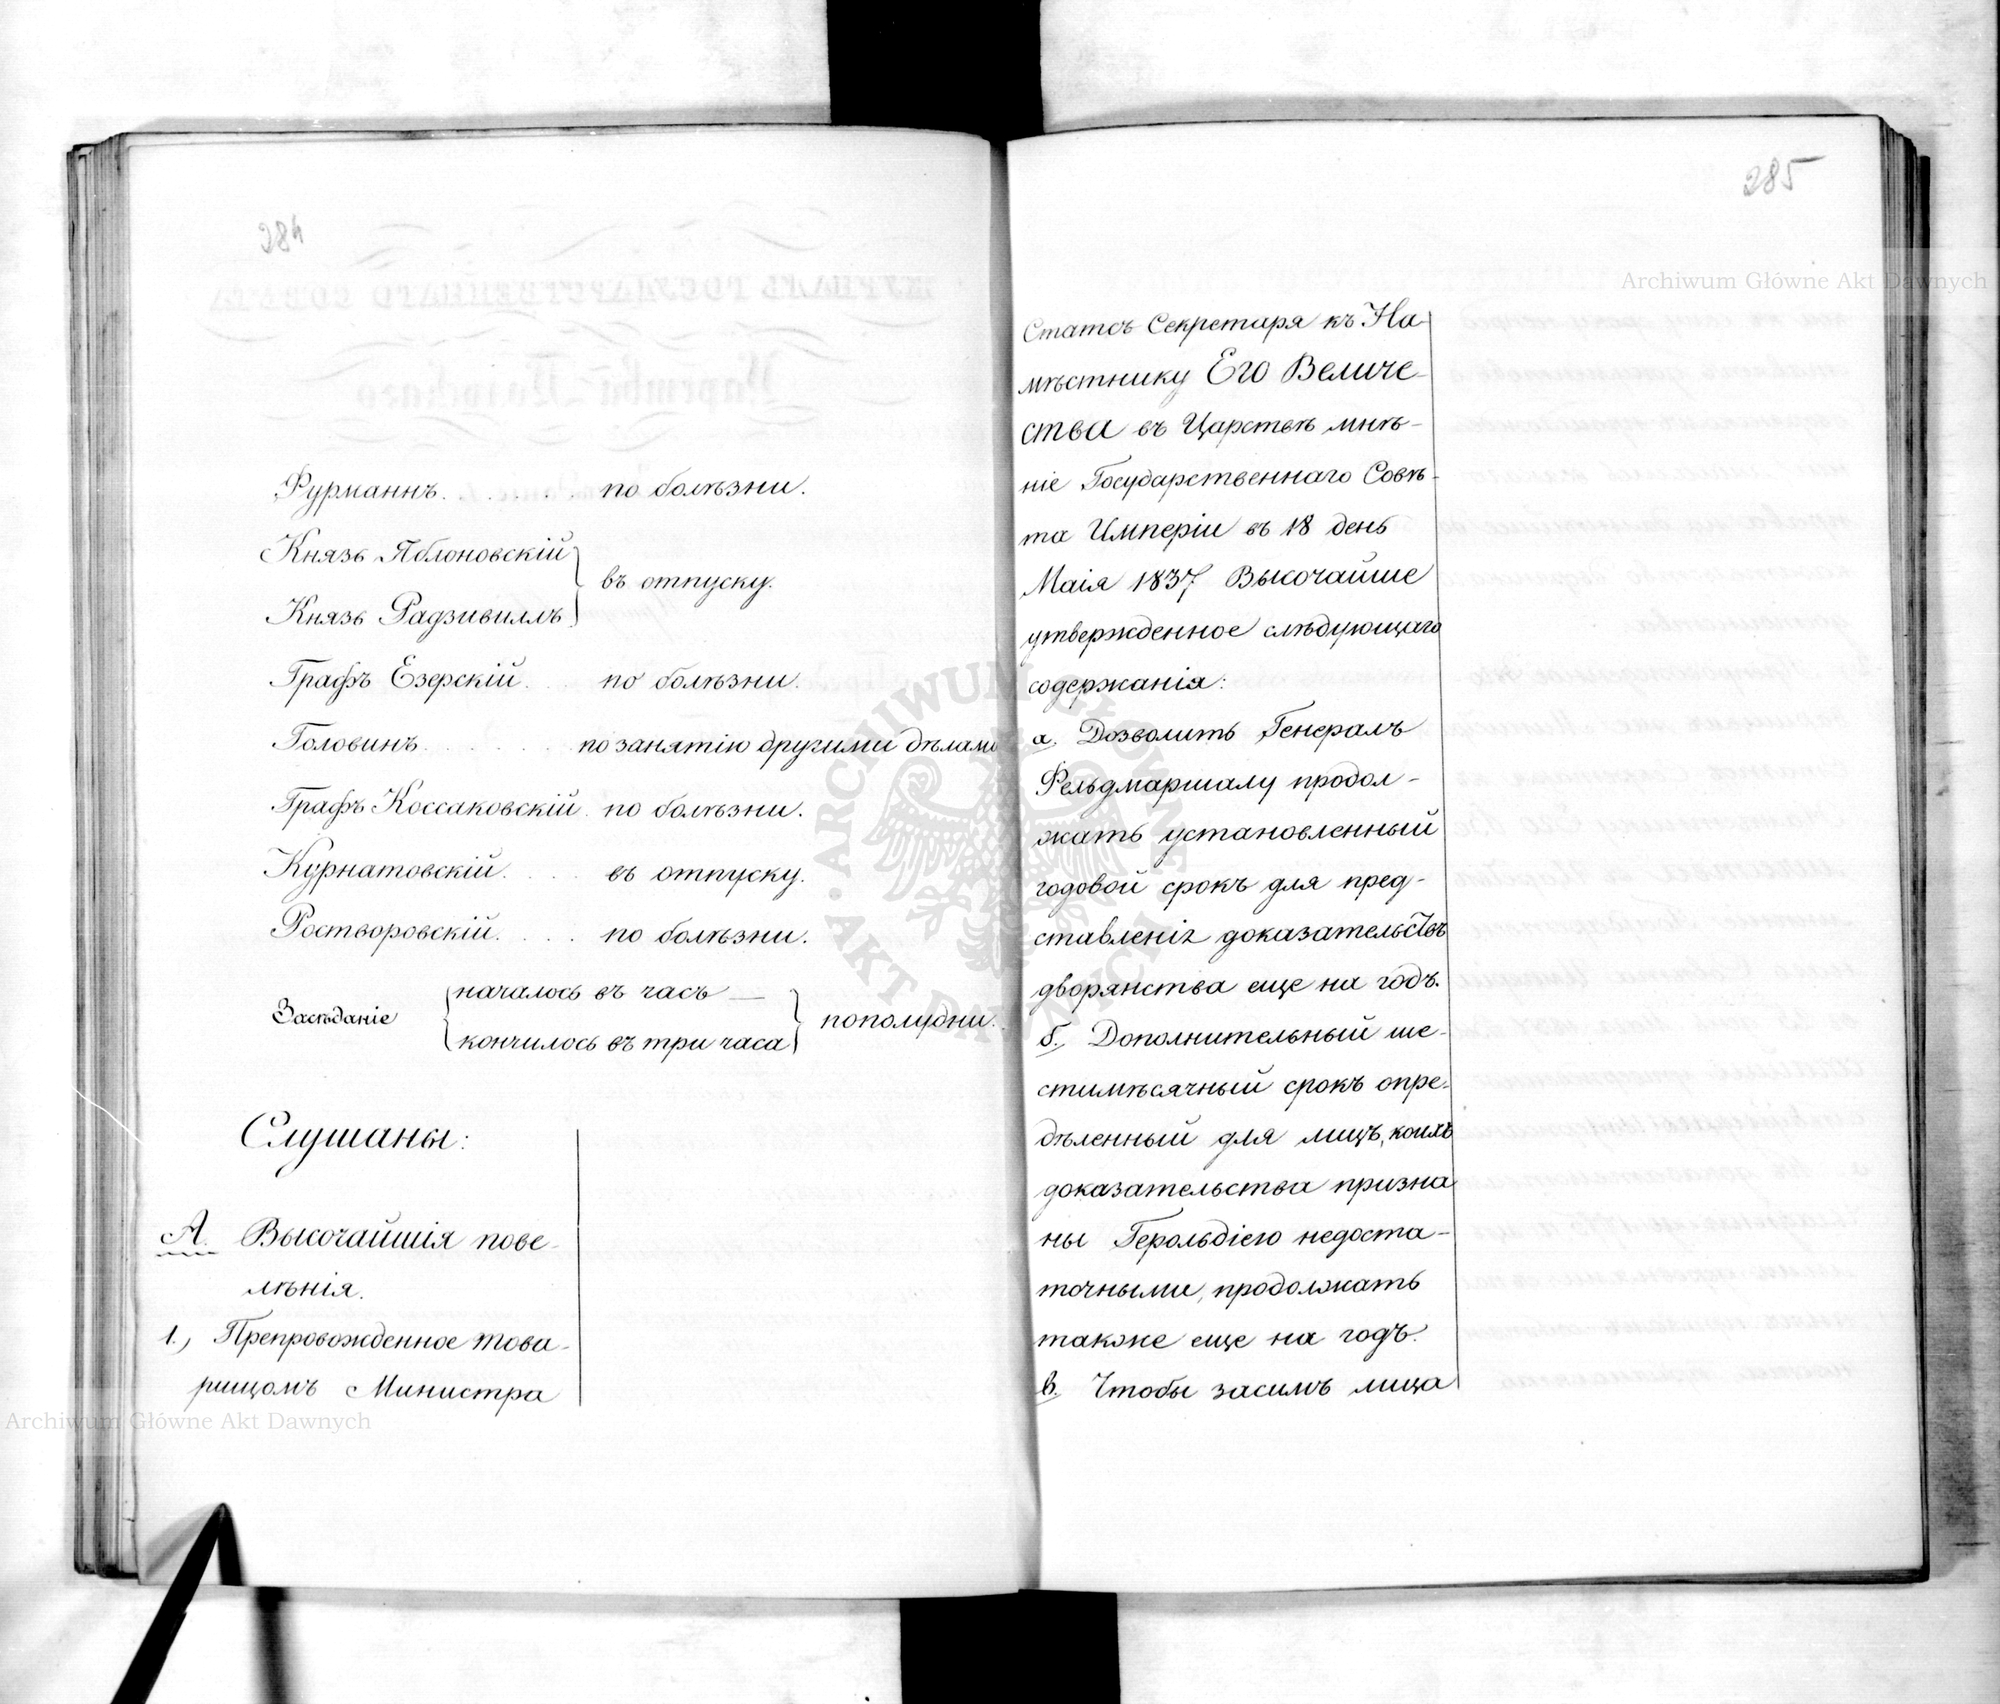 284
Фурманнъ . . . . . по болѣзни.
Князь Яблоновскій
въ отпуску.
Князь Радзивиллъ
Графъ Езерскій . . . по болѣзни.
Головинъ . . . . . . по занятію другими дѣлами
Графъ Коссаковскій . по болѣзни.
Курнатовскій . . . . въ отпуску.
Ростворовскій . . . . по болѣзни.
началось въ часъ —
Засѣданіе пополудни.
кончилось въ три часа
Слушаны:
А. Высочайшія пове-
лѣнія.
1., Препровожденное това-
рищомъ Министра
Archiwum Główne Akt Dawnych
285
Archiwum Główne Akt Dawnych
Статсъ Секретаря къ На-
мѣстнику Его Величе-
ства въ Царствѣ мнѣ-
ніе Государственнаго Совѣ-
та Имперіи въ 18 день
Маія 1837 Высочайше
утвержденное слѣдующаго
содержанія:
а. Дозволить Генералъ
Фельдмаршалу продол-
жать установленный
годовой срокъ для пред-
ставленія доказательствъ
дворянства еще на годъ.
б. Дополнительный ше-
стимѣсячный срокъ опре-
дѣленный для лицъ, коихъ
доказательства призна
ны Герольдіею недоста-
точными, продолжать
также еще на годъ.
в. Чтобы засимъ лица
ARCHIWUM GŁÓWNE AKT DAWNYCH